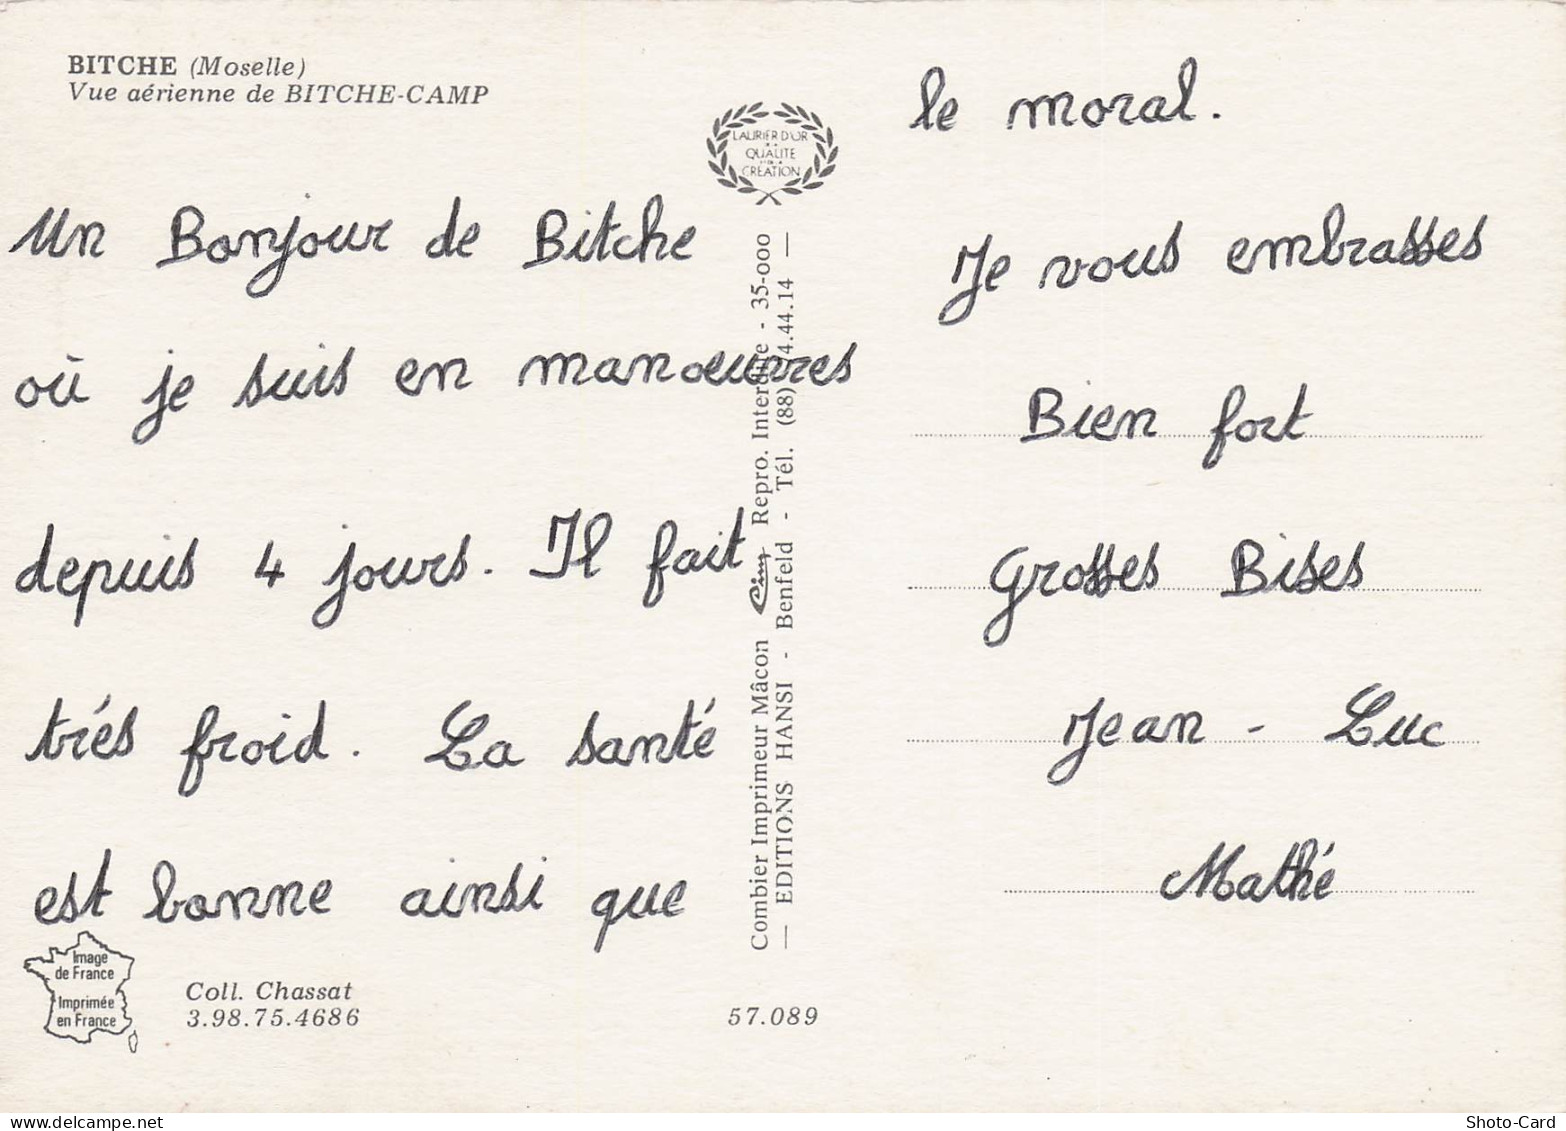 BITCHE (Moselle)
Vue aérienne de BITCHE-CAMP
Un Bonjour de Bitche
où je suis en manoeuvres
depuis 4 jours. Il fait
trés froid. La santé
est bonne ainsi que
le moral.
Je vous embrasses
Bien fort
Grosses Bises
Jean - Luc
Mathé
LAURIER D'OR
DE LA
QUALITE
CRÉATION
Combier Imprimeur Mâcon Cim Repro. Interdite - 35-000
— EDITIONS HANSI - Benfeld - Tél. (88) 74.44.14 —
Image
de France
Imprimée
en France
Coll. Chassat
3.98.75.4686
57.089
Shoto-Card